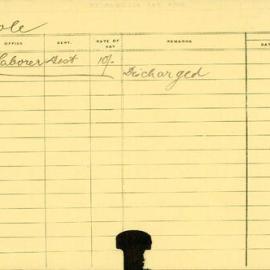 ole
OFFICE DEPT. RATE OF PAY REMARKS DA
Laborer 10/-
Discharged